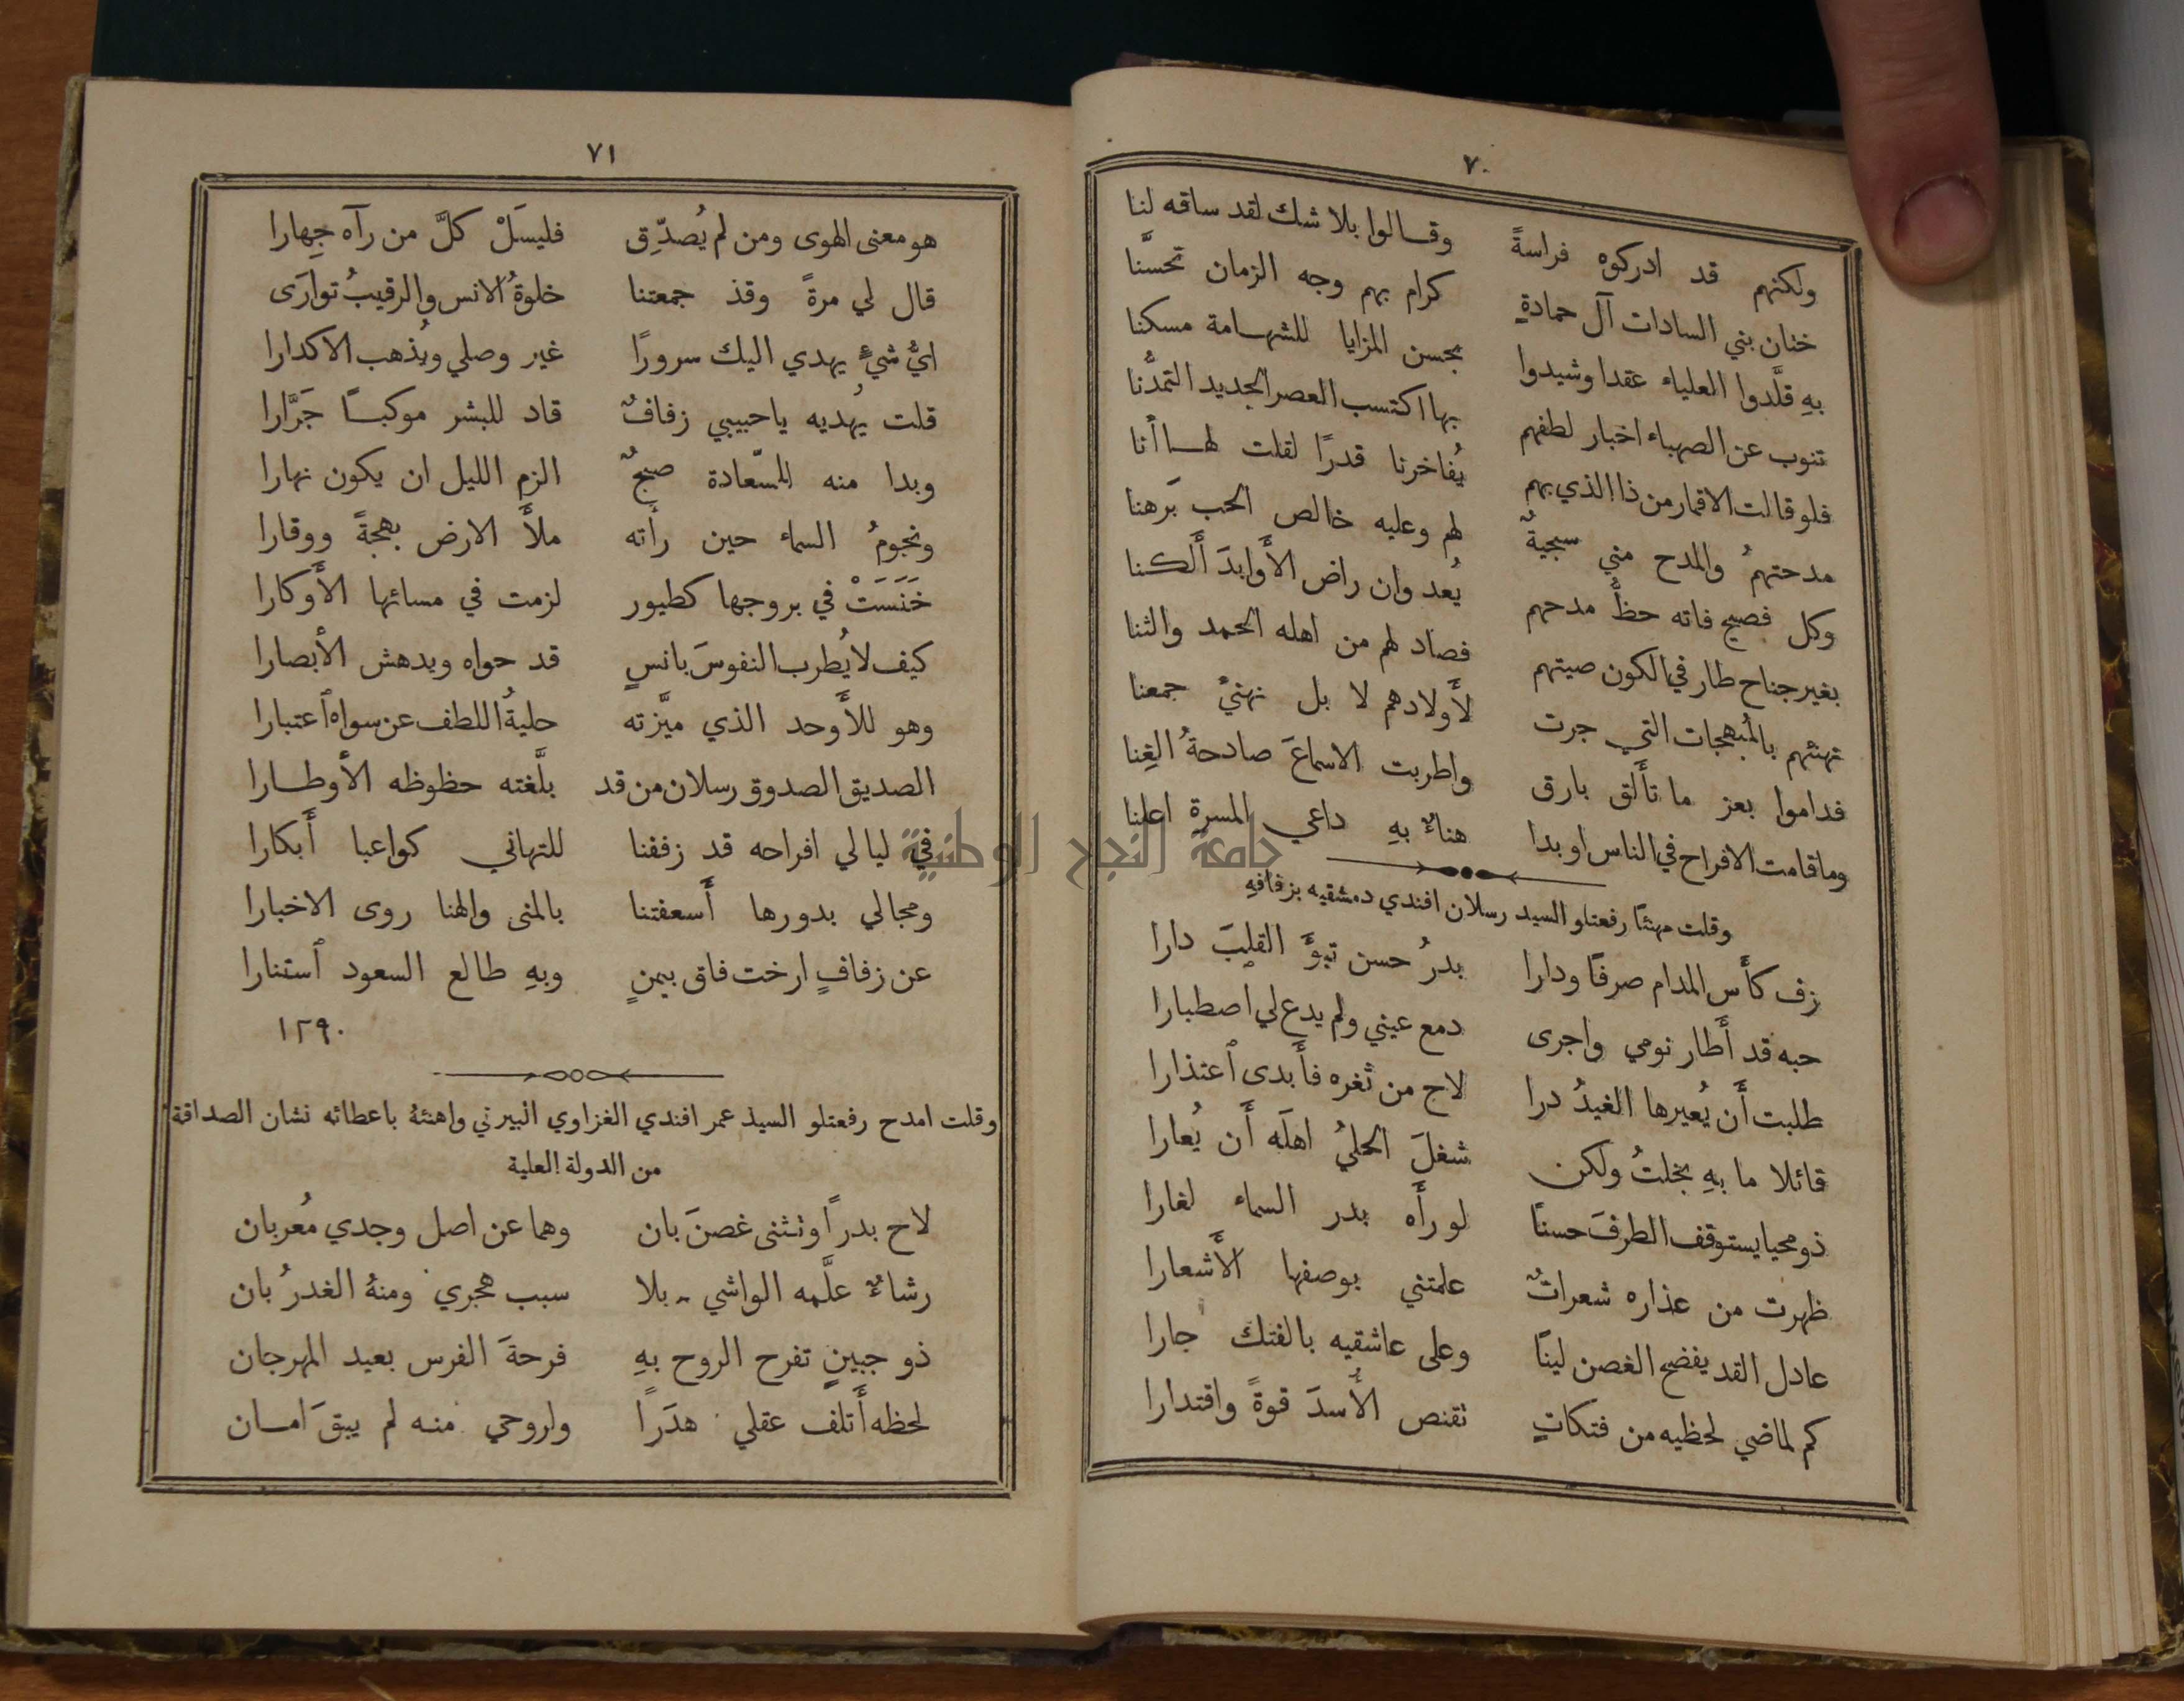 ٧٠
ولكنهم قد ادركوه فراسةً وقالوا بلا شك لقد ساقه لنا
ختان بني السادات آل حمادةٍ كرام بهم وجه الزمان تحسَّنا
بهِ قلَّدوا العلياء عقدا وشيدوا بحسن المزايا للشهامة مسكنا
تنوب عن الصهباء اخبار لطفهم بها اكتسب العصر الجديد التمدُّنا
فلو قالت الاقمار من ذا الذي بهم يُفاخرنا قدرًا لقلت لها أنا
مدحتهمُ والمدح مني سجيةٌ لهم وعليه خالص الحب بَرهنا
وكل فصيح فاته حظُّ مدحهم يُعد وان راض الأَوابدَ أَلكنا
بغير جناح طار في الكون صيتهم فصاد لهم من اهله الحمد والثنا
تهنئهم بالمبهجات التي جرت لأَولادهم لا بل نهنيُّ جمعنا
فداموا بعز ما تأَلق بارق واطربت الاسماعَ صادحةُ الغِنا
وما قامت الافراح في الناس او بدا هناءٌ بهِ داعي المسرة اعلنا
وقلت مهنئًا رفعتلو السيد رسلان افندي دمشقيه بزفافهِ
زف كأَس المدام صرفًا ودارا بدرُ حسن تبوَّأَ القلبَ دارا
حبه قد أَطار نومي واجرى دمع عيني ولم يدع لي اصطبارا
طلبت أَن يُعيرها الغيدُ درا لاح من ثغره فأَبدى ٱعتذارا
قائلا ما بهِ بخلتُ ولكن شغلَ الحليُ اهلَه أَن يُعارا
ذو محيا يستوقف الطرفَ حسنًا لو رأَه بدر السماء لغارا
ظهرت من عذاره شعراتٌ علمتني بوصفها الأَشعارا
عادل القد يفضح الغصن لينًا وعلى عاشقيه بالفتك جارا
كم لماضي لحظيه من فتكاتٍ تقنص الأُسدَ قوةً واقتدارا
٧١
هو معنى الهوى ومن لم يُصدِّق فليسَلْ كلَّ من رآه جِهارا
قال لي مرةً وقد جمعتنا خلوةُ الانس والرقيبُ توارَى
ايُّ شيءٍ يهدي اليك سرورًا غير وصلي ويُذهب الاكدارا
قلت يُهديه يا حبيبي زفافٌ قاد للبشر موكبًا جَرَّارا
وبدا منه للسّعادة صبحٌ الزم الليل ان يكون نهارا
ونجومُ السماء حين رأَته ملأَ الارض بهجةً ووقارا
خَنَسَتْ في بروجها كطيور لزمت في مسائها الأَوكارا
كيف لا يُطرب النفوسَ بانسٍ قد حواه ويدهش الأَبصارا
وهو للأَوحد الذي ميَّزته حليةُ اللطف عن سواه ٱعتبارا
الصديق الصدوق رسلان من قد بلَّغته حظوظه الأَوطارا
في ليالي افراحه قد زففنا للتهاني كواعبا أَبكارا
ومجالي بدورها أَسعفتنا بالمنى والهنا روى الاخبارا
عن زفافٍ ارخت فاق بيمنٍ وبهِ طالع السعود ٱستنارا
١٢٩٠
وقلت امدح رفعتلو السيد عمر افندي الغزاوي البيرتي واهنئهُ باعطائه نشان الصداقة
من الدولة العلية
لاح بدراً وتثنى غصنَ بان وهما عن اصل وجدي مُعربان
رشاءٌ علَّمه الواشي بلا سبب هجري ومنهُ الغدرُ بان
ذو جبينٍ تفرح الروح بهِ فرحةَ الفرس بعيد المهرجان
لحظه أَتلف عقلي هدَراً واروحي منه لم يبقَ امان
جامعة النجاح الوطنية